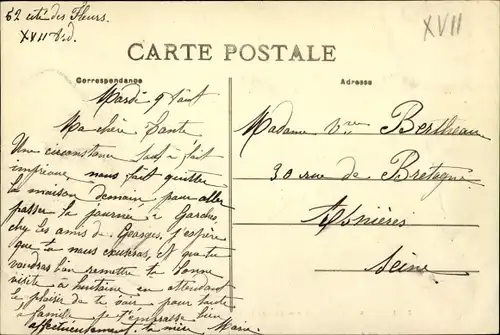 62 cité des Fleurs.
XVII
XVII Ard.
CARTE POSTALE
Correspondance
Adresse
Mardi 9 Aout
Ma chère Tante
Une circonstance tout à fait
imprévue, nous fait quitter
la maison demain, pour aller
passer la journée à Garches,
chez les amis de Georges, j'espère
que tu nous excuseras, et que tu
voudras bien remettre ta bonne
visite à huitaine, en attendant
le plaisir de te voir, pour toute
la famille, je t'embrasse bien
affectueusement, ta nièce Marie
Madame Vve Bertheau
30 rue de Bretagne
Asnières
Seine